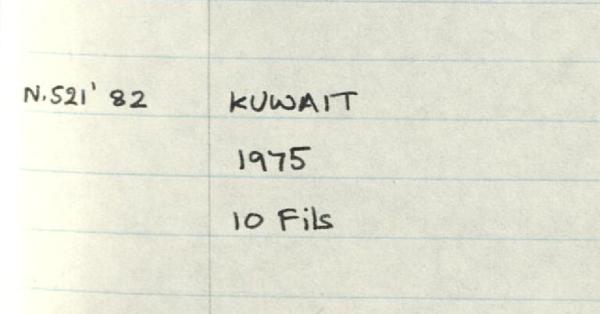 N.521' 82 KUWAIT
1975
10 Fils